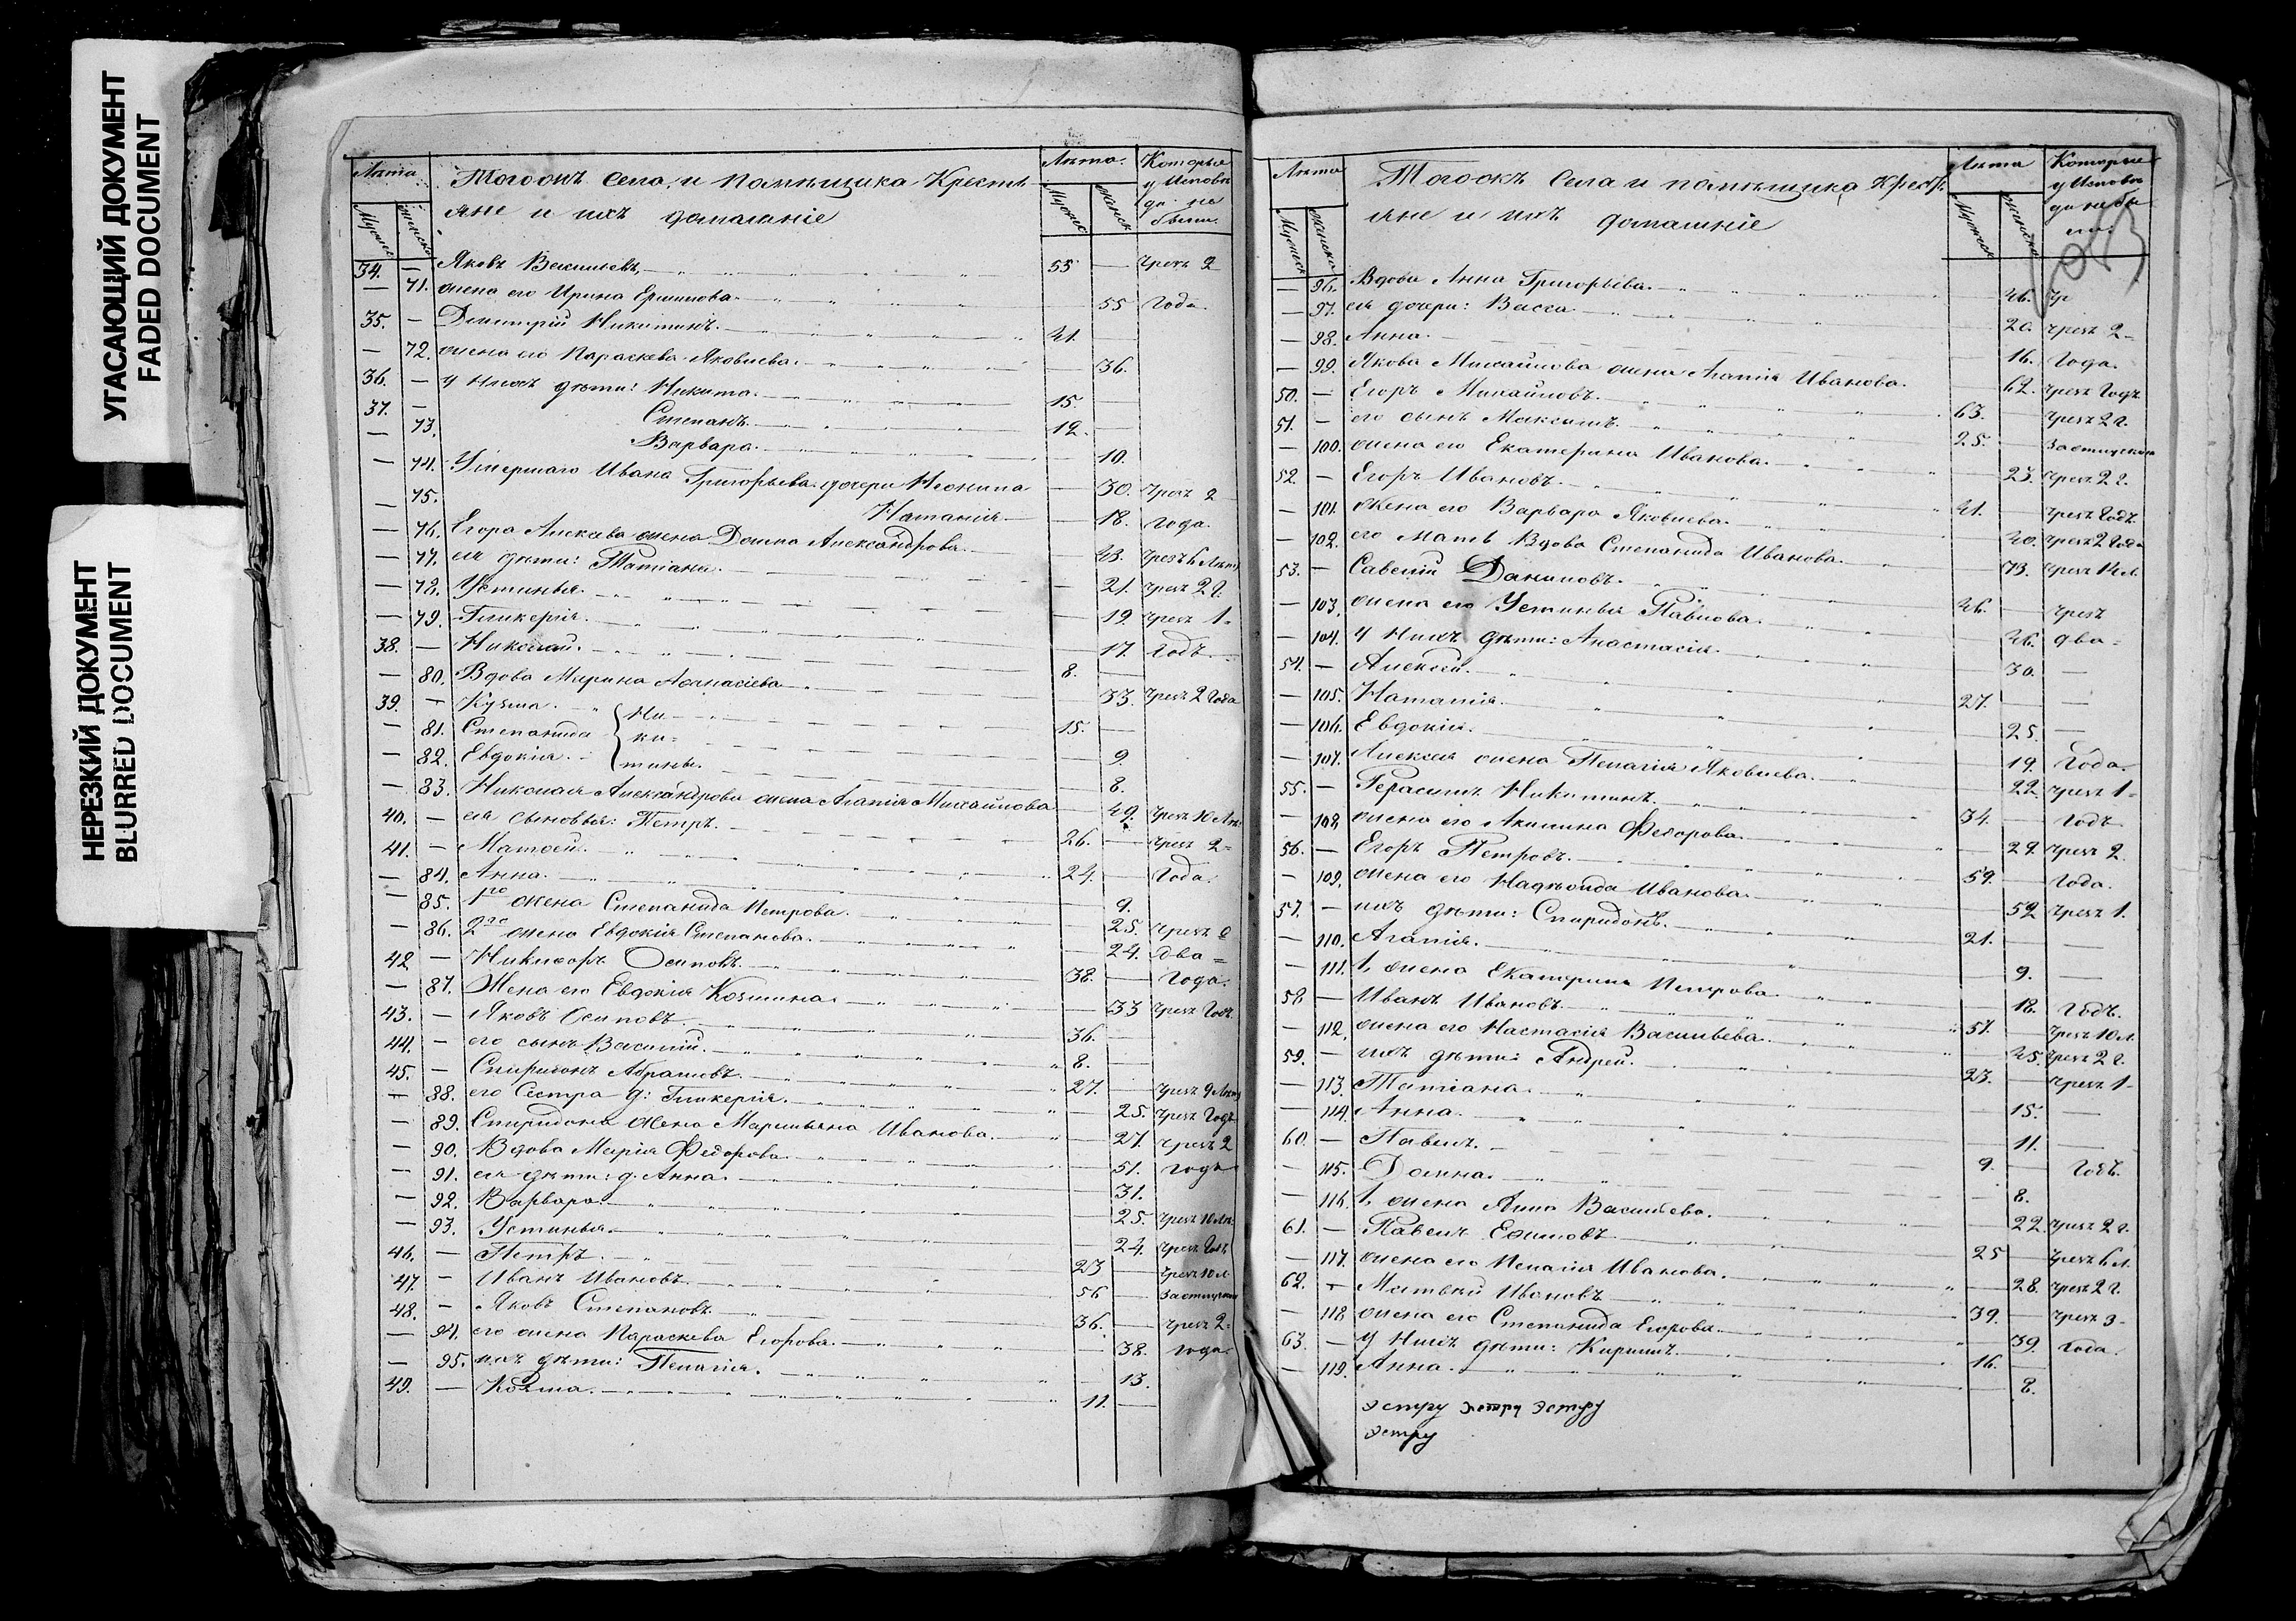 УГАСАЮЩИЙ ДОКУМЕНТ
FADED DOCUMENT
НЕРЕЗКИЙ ДОКУМЕНТ
BLURRED DOCUMENT
Лѣта. Тогожъ села, и помѣщика Кресть- Лѣта. Которые у Исповѣ
Мужеск женска яне и ихъ домашніе Мужес женск ди не были.
34. — Яковъ Васильевъ. 55 — чрезъ 2
— 71. жена его Ирина Ермилова. 55 Года.
35. — Дмитрій Никитинъ. 41. —
— 72. жена его Параскева Яковлева. — 36.
36. — у нихъ дѣти: Никита. 15. —
37. — Степанъ. 12. —
— 73. Варвара. — 10.
— 74. Умершаго Ивана Григорьева дочери Неонила — 30. чрезъ 2
— 75. Наталія. — 18. года.
— 76. Егора Алексѣева жена Домна Александрова. — 43. чрезъ 6 Лѣтъ
— 77. ея дѣти: Татіана. — 21. чрезъ 2 г.
— 78. Устинья. — 19. чрезъ 1-
— 79. Гликерія. — 17. Годъ.
38. — Николай. 8.
— 80. Вдова Марина Афанасіева — 33. чрезъ 2 Года
39. — Кузма. Ни- 15. —
— 81. Степанида ки- — 9.
— 82. Евдокія. тины. — 8.
— 83. Николая Александрова жена Агапія Михайлова — 49. чрезъ 10 Лѣт
40. — ея сыновья: Петръ. 26. — чрезъ 2-
41. — Матѳей. 24. — Года.
— 84. Анна. — 9.
— 85. 1го жена Степанида Петрова. — 25. чрезъ
— 86. 2го жена Евдокія Степанова. — 24. два-
42 — Никифоръ Осиповъ. 38. — Года.
— 87. Жена его Евдокія Козмина. — 33 чрезъ Годъ.
43. — Яковъ Осиповъ. 36. —
44. — его сынъ Василій. 8. —
45. — Спиридонъ Абрамовъ. 27. — чрезъ 9 Лѣтъ
— 88. его Сестра д: Гликерія. — 25. чрезъ Годъ
— 89. Спиридона жена Маримьяна Иванова. — 27. чрезъ 2
— 90. Вдова Марія Ѳедорова. — 51. года
— 91. ея дѣти: д. Анна. — 31.
— 92. Варвара. — 25. чрезъ 10 Лѣт.
— 93. Устинья. — 24. чрезъ Годъ
46. — Петръ. 23 — чрезъ 10 л.
47. — Иванъ Ивановъ. 56 —
48. — Яковъ Степановъ. 36. — чрезъ 2-
— 94. его жена Параскева Егорова. — 38. года.
— 95. ихъ дѣти: Пелагія. — 13.
49. — Козма. 11. —
Лѣта Тогожъ Села и помѣщика Кресть- Лѣта Которые у Исповѣ
Мужеск женска яне и ихъ домашніе Мужеск женска ди не бы ли.
— 96. Вдова Анна Григорьева. — 46. чр
— 97. ея дочери: Васса. — 20. чрезъ 2-
— 98. Анна. — 16. Года.
— 99. Якова Михайлова жена Агапія Иванова. — 62. чрезъ Годъ
50. — Егоръ Михайловъ. 63. — чрезъ 2 г.
51. — его сынъ Максимъ. 25. —
— 100. жена его Екатерина Иванова. — 23. чрезъ 2 г.
52 — Егоръ Ивановъ. 41. — чрезъ Годъ.
— 101. Жена его Варвара Яковлева. — 40. чрезъ 2 Года
— 102. его Мать Вдова Степанида Иванова. — 73. чрезъ 14 л.
53. — Савелій Даниловъ. 46. — чрезъ
— 103. жена его Устинья Павлова. — 46. два-
— 104. у Нихъ дѣти: Анастасія. — 30. —
54. — Алексѣй. 27. — —
— 105. Наталія. — 25. —
— 106. Евдокія. — 19. Года.
— 107. Алексѣя жена Пелагія Яковлева. — 22. чрезъ 1-
55. — Герасимъ Никитинъ. 34. — Годъ
— 108. жена его Акилина Ѳедорова. — 29. чрезъ 2.
56. — Егоръ Петровъ. 59. — Года.
— 109. жена его Надѣжда Иванова. — 52 чрезъ 1.
57. — ихъ дѣти: Спиридонъ. 21. — —
— 110. Агапія. — 9. —
— 111. 1, жена Екатерина Петрова. — 18. Годъ.
58 — Иванъ Ивановъ. 57. — чрезъ 10 л.
— 112. жена его Настасія Васильева. — 45. чрезъ 2 г.
59. — ихъ дѣти: Андрей. 23. — чрезъ 1-
— 113. Татіана. — 15. —
— 114. Анна. — 11. —
60. — Павелъ. 9. — Годъ.
— 115. Домна. — 8.
— 116. 1, жена Анна Васильева. — 22. чрезъ 2 г.
61. — Павелъ Ефимовъ. 25 — чрезъ 6 л.
— 117. жена его Пелагія Иванова. — 28. чрезъ 2 г.
62. — Матвѣй Ивановъ. 39. — чрезъ 3-
— 118 жена его Степанида Егорова. — 39. Года.
63. — у Нихъ дѣти: Кирилъ. 16. —
— 119. Анна. — 8.